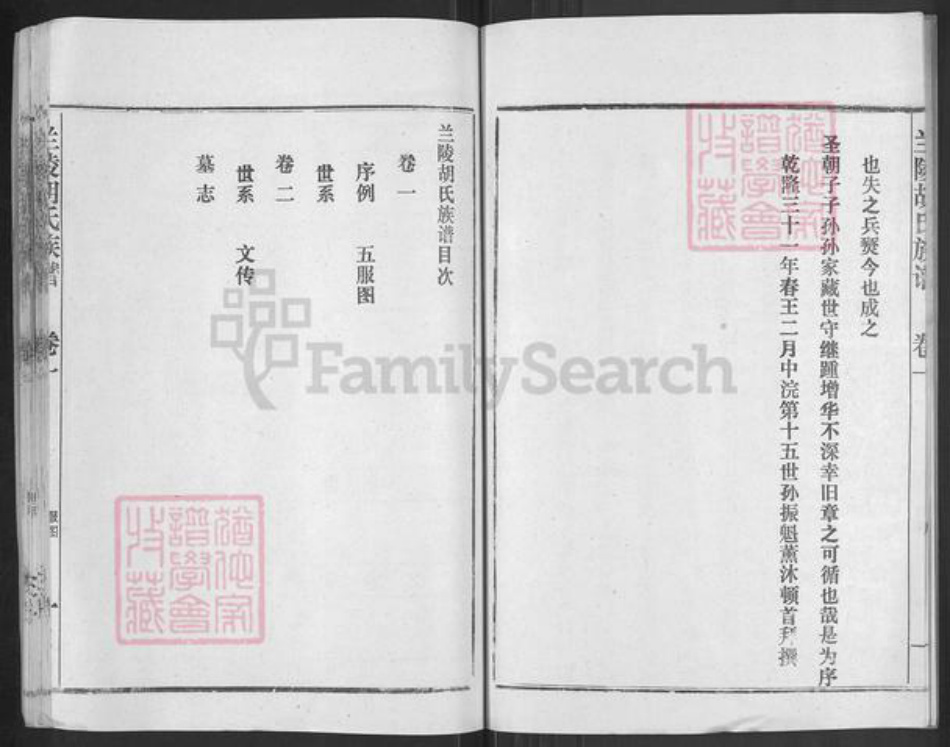 兰陵胡氏族谱 卷一
也失之兵燹今也成之
圣朝子子孙孙家藏世守继踵增华不深幸旧章之可循也哉是为序
乾隆三十一年春王二月中浣第十五世孙振魁薰沐顿首拜撰
兰陵胡氏族谱目次
卷一
序例 五服图
世系
卷二
世系 文传
墓志
兰陵胡氏族谱 卷一
FamilySearch
譜學會
收藏
譜學會
收藏